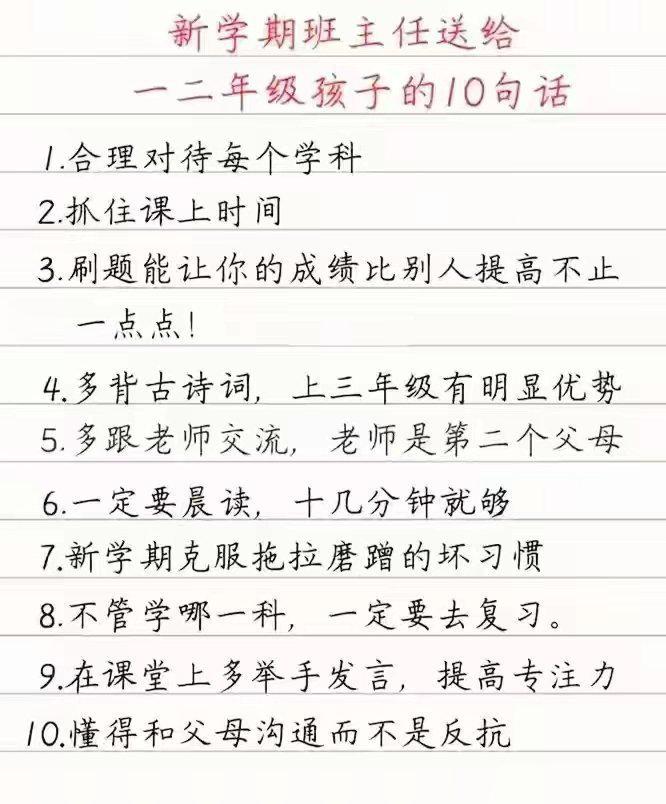 新学期班主任送给
一二年级孩子的10句话
1.合理对待每个学科
2.抓住课上时间
3.刷题能让你的成绩比别人提高不止
一点点!
4.多背古诗词,上三年级有明显优势
5.多跟老师交流,老师是第二个父母
6.一定要晨读,十几分钟就够
7.新学期克服拖拉磨蹭的坏习惯
8.不管学哪一科,一定要去复习。
9.在课堂上多举手发言,提高专注力
10.懂得和父母沟通而不是反抗